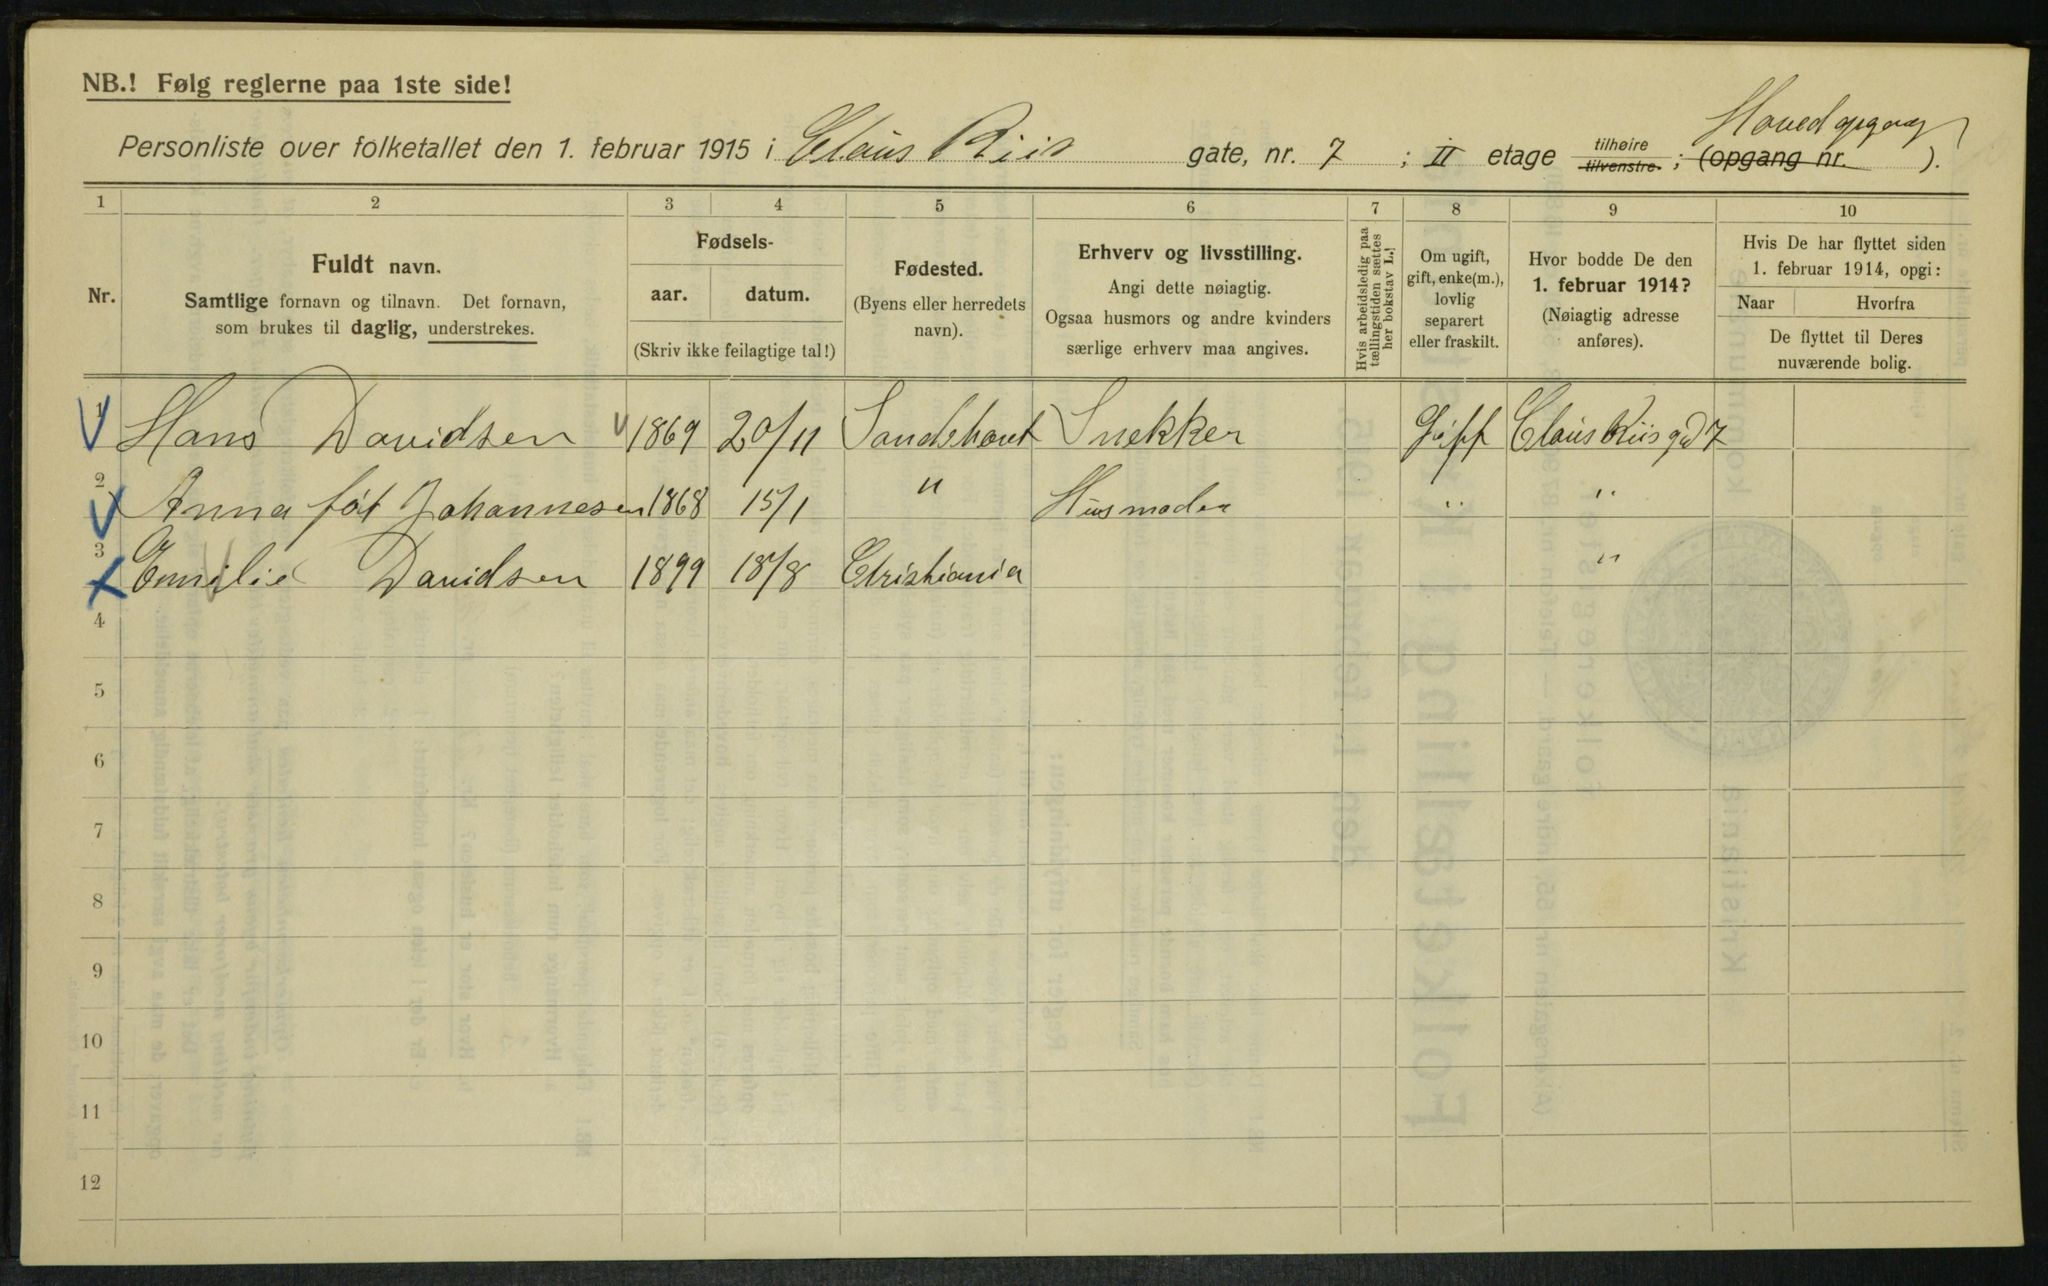 NB.! Følg reglerne paa 1ste side!
Hovedopgang
Personliste over folketallet den 1. februar 1915 i Claus Riis gate, nr. 7 ; II etage tilhøire tilvenstre. ; (opgang nr. ).
1 2 3 4 5 6 7 8 9 10
Nr.
Fuldt navn.
Samtlige fornavn og tilnavn. Det fornavn,
som brukes til daglig, understrekes.
Fødsels-
aar. datum.
(Skriv ikke feilagtige tal!)
Fødested.
(Byens eller herredets
navn).
Erhverv og livsstilling.
Angi dette nøiagtig.
Ogsaa husmors og andre kvinders
særlige erhverv maa angives.
Hvis arbeidsledig paa
tællingstiden sættes
her bokstav L.!
Om ugift,
gift, enke(m.),
lovlig
separert
eller fraskilt.
Hvor bodde De den
1. februar 1914?
(Nøiagtig adresse
anføres).
Hvis De har flyttet siden
1. februar 1914, opgi:
Naar Hvorfra
De flyttet til Deres
nuværende bolig.
1 Hans Davidsen 1869 20/11 Sandehoved Snekker Gift Claus Riisgd 7
2 Anna føt Johannesen 1868 15/1 " Husmoder " "
3 Emilie Davidsen 1899 18/8 Christiania "
4
5
6
7
8
9
10
11
12